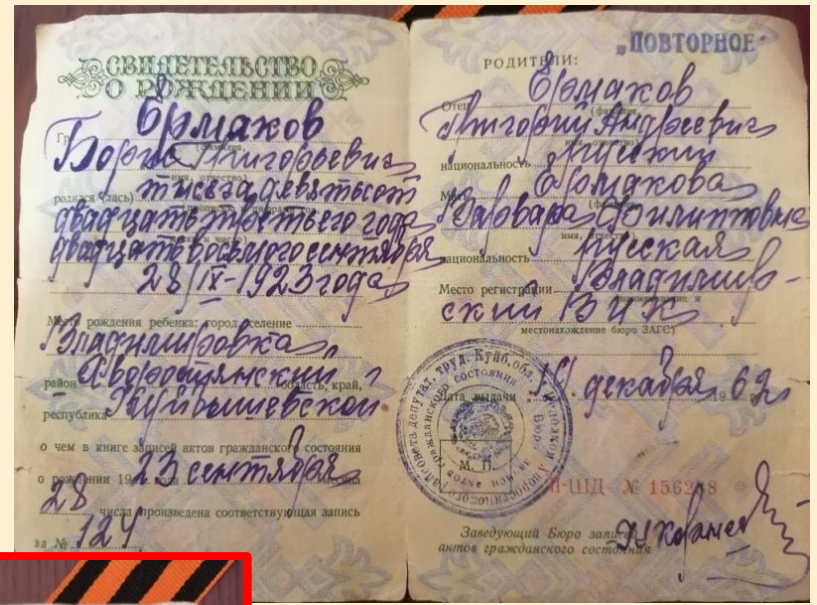 СВИДЕТЕЛЬСТВО
О РОЖДЕНИИ
Ермаков
Гр.
(фамилия,
Борис Григорьевич
имя, отчество)
родился (лась) тысяча девятьсот
двадцать третьего года
двадцать восьмого сентября
28/IX-1923 года
Место рождения ребенка: город, селение
Владимировка
район Хворостянский область, край,
республика Куйбышевской
о чем в книге записей актов гражданского состояния
о рождении 19 23 года сентября месяца
28 числа произведена соответствующая запись
за № 124
„ПОВТОРНОЕ"
РОДИТЕЛИ:
Отец Ермаков
(фамилия,
Григорий Андреевич
имя, отчество)
национальность русский
Мать Ермакова
(фамилия,
Варвара Филипповна
имя, отчество)
национальность русская
Место регистрации Владимир-
(наименование и
ский ВИК
местонахождение бюро ЗАГС)
Дата выдачи 19 декабря 1962 г.
М. П.
II-ШД № 1562 8
Заведующий Бюро записи
актов гражданского состояния